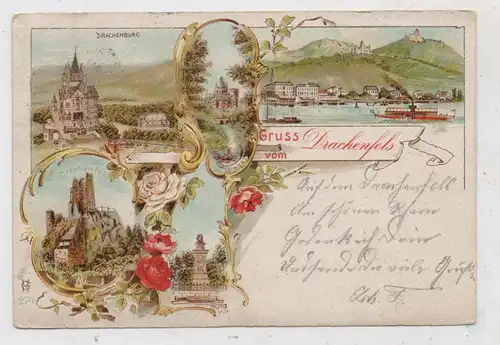 DRACHENBURG
Gruss
vom Drachenfels
Auf dem Drachenfels
Am schönen Rhein
Gedenk ich Dein
Und sende die viele Grüße